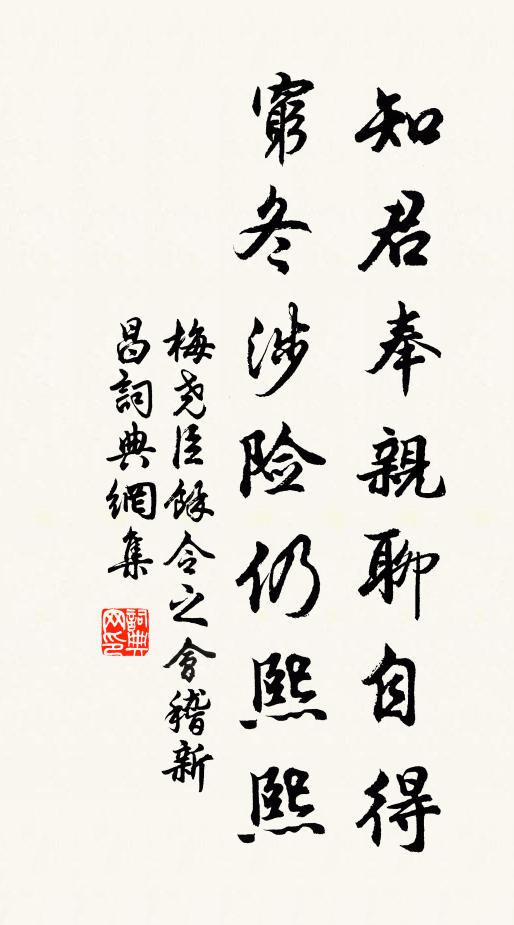 知君奉親聊自得
窮冬涉險仍熙熙
梅堯臣餘令之會稽新
昌詞典網集
詞典
网印